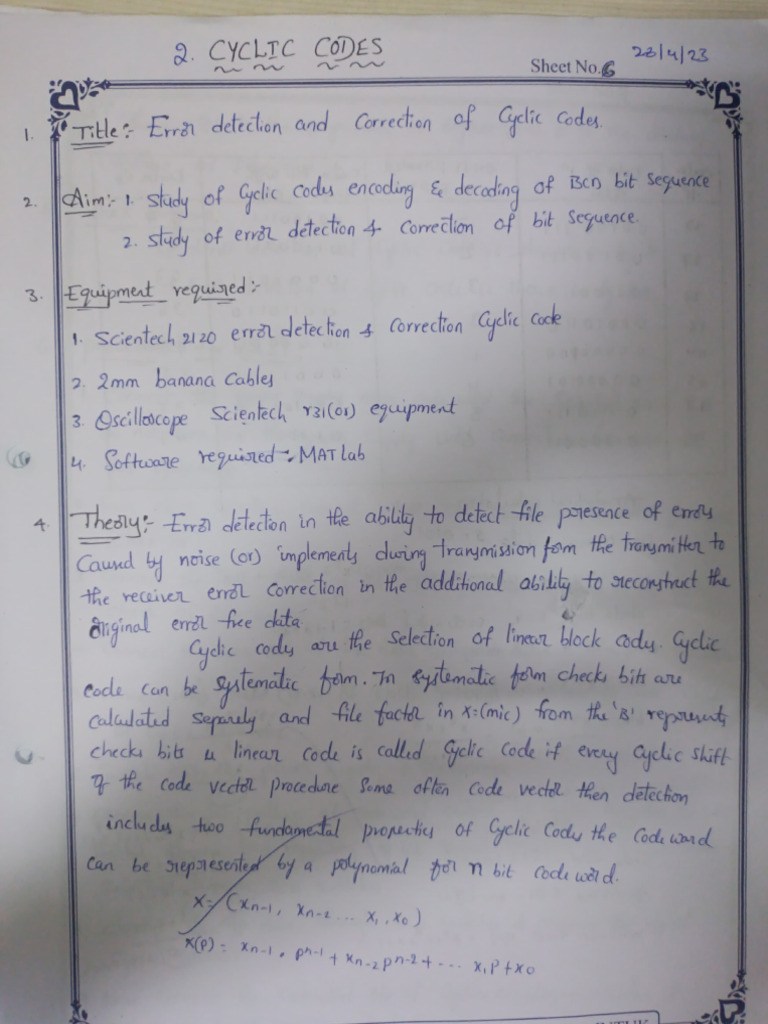 2. CYCLIC CODES
Sheet No. 6
28/4/23
1. Title:- Error detection and Correction of Cyclic Codes.
2. Aim:- 1. Study of Cyclic Codes encoding & decoding of BCD bit Sequence
2. Study of error detection & Correction of bit Sequence.
3. Equipment required:-
1. Scientech 2120 error detection & Correction Cyclic Code
2. 2mm banana Cables
3. Oscilloscope Scientech 731(or) equipment
4. Software required:- MAT Lab
4. Theory:- Error detection in the ability to detect file presence of errors
Caused by noise (or) implements during transmission form the transmitter to
the receiver error Correction in the additional ability to reconstruct the
Original error free data.
Cyclic codes are the Selection of linear block codes. Cyclic
code can be systematic form. In systematic form checks bits are
Calculated Separely and file factor in x=(mic) from the 'B' represents
checks bits a linear code is called Cyclic code if every cyclic shift
of the code vector procedure Some often code vector then detection
includes two fundamental properties of Cyclic Codes the Code word
Can be represented by a polynomial for n bit code word.
X= (xn-1, xn-2 ... x1, x0)
X(P) = xn-1 . pn-1 + xn-2 pn-2 + ... x1P + x0